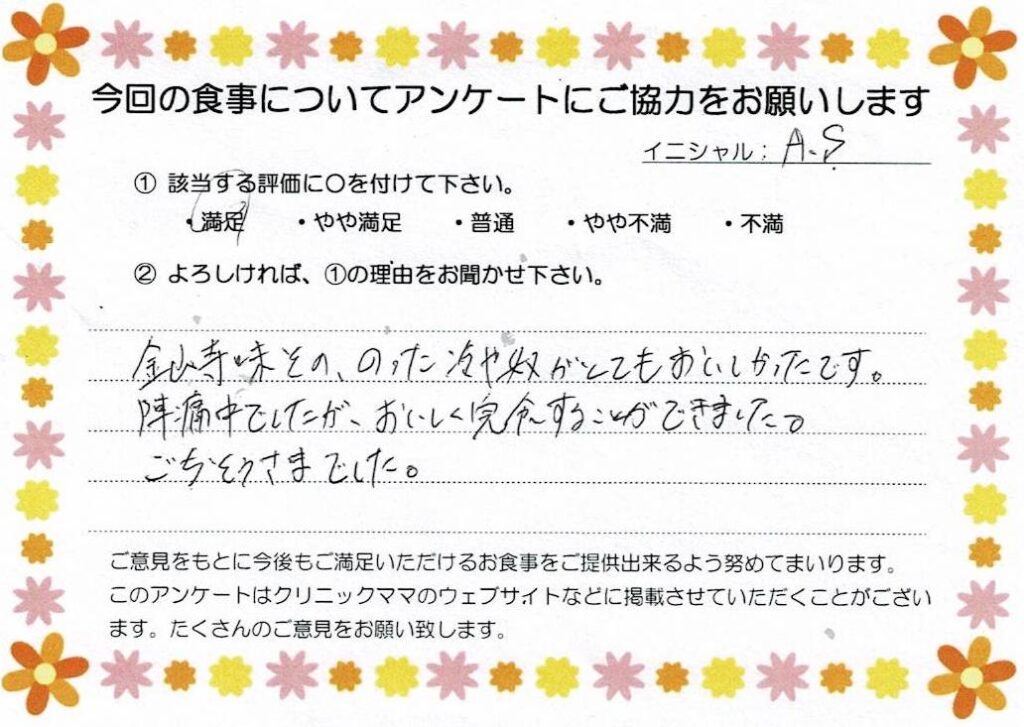 今回の食事についてアンケートにご協力をお願いします
イニシャル：A.S
① 該当する評価に〇を付けて下さい。
・満足 ・やや満足 ・普通 ・やや不満 ・不満
② よろしければ、①の理由をお聞かせ下さい。
金山寺味その、のった冷や奴がとてもおいしかったです。
陣痛中でしたが、おいしく完食することができました。
ごちそうさまでした。
ご意見をもとに今後もご満足いただけるお食事をご提供出来るよう努めてまいります。
このアンケートはクリニックママのウェブサイトなどに掲載させていただくことがござい
ます。たくさんのご意見をお願い致します。